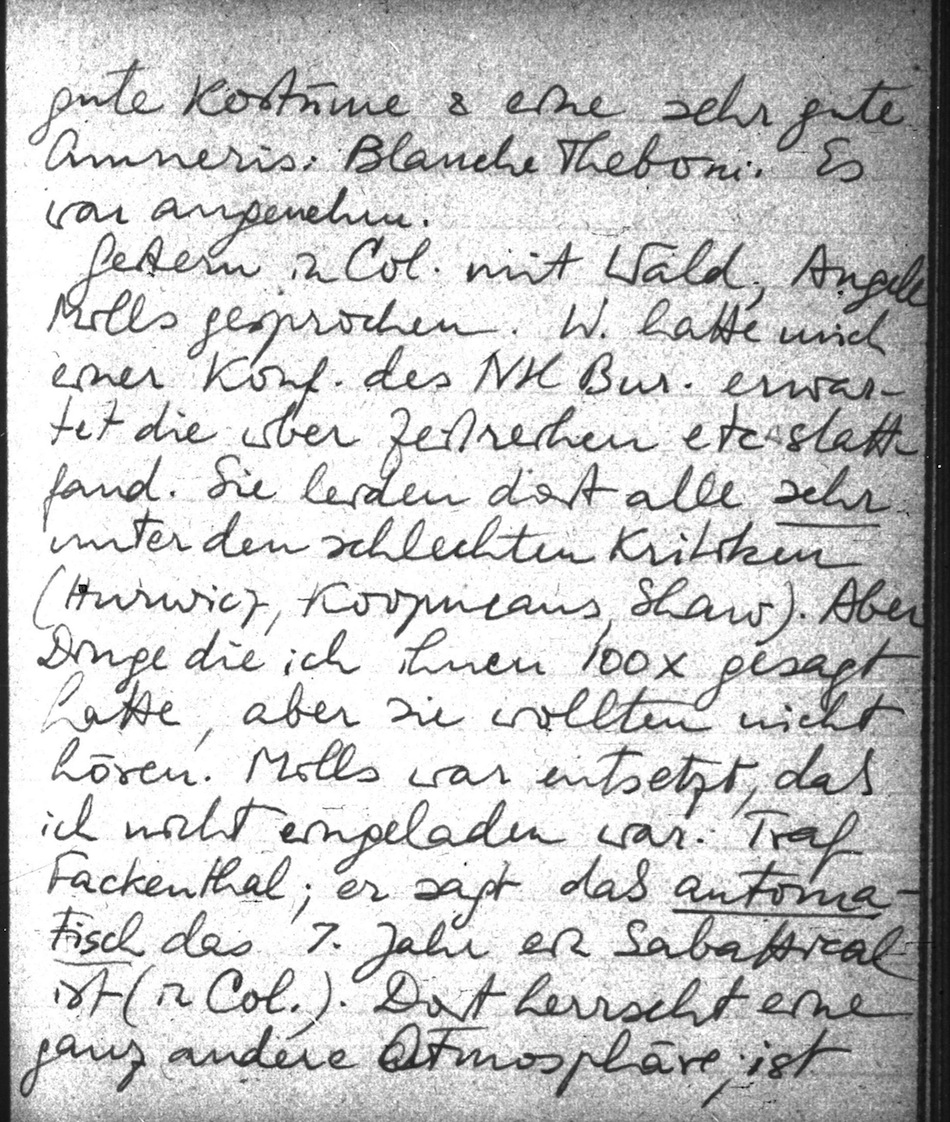 gute Kostüme & eine sehr gute
Amneris: Blanche Thebom. Es
war angenehm.
Gestern in Col. mit Wald, Angell
Mills gesprochen. W. hatte mich
einer Konf. des NH Bur. erwar-
tet die über Zeitreihen etc statt
fand. Sie leiden dort alle sehr
unter den schlechten Kritiken
(Hurwicz, Koopmans, Shaw). Aber
Dinge die ich ihnen 100x gesagt
hatte, aber sie wollten nicht
hören. Mills war entsetzt, daß
ich nicht eingeladen war. Traf
Fackenthal; er sagt daß automa-
tisch das 7. Jahr ein Sabattical
ist (in Col.). Dort herrscht eine
ganz andere Atmosphäre; ist